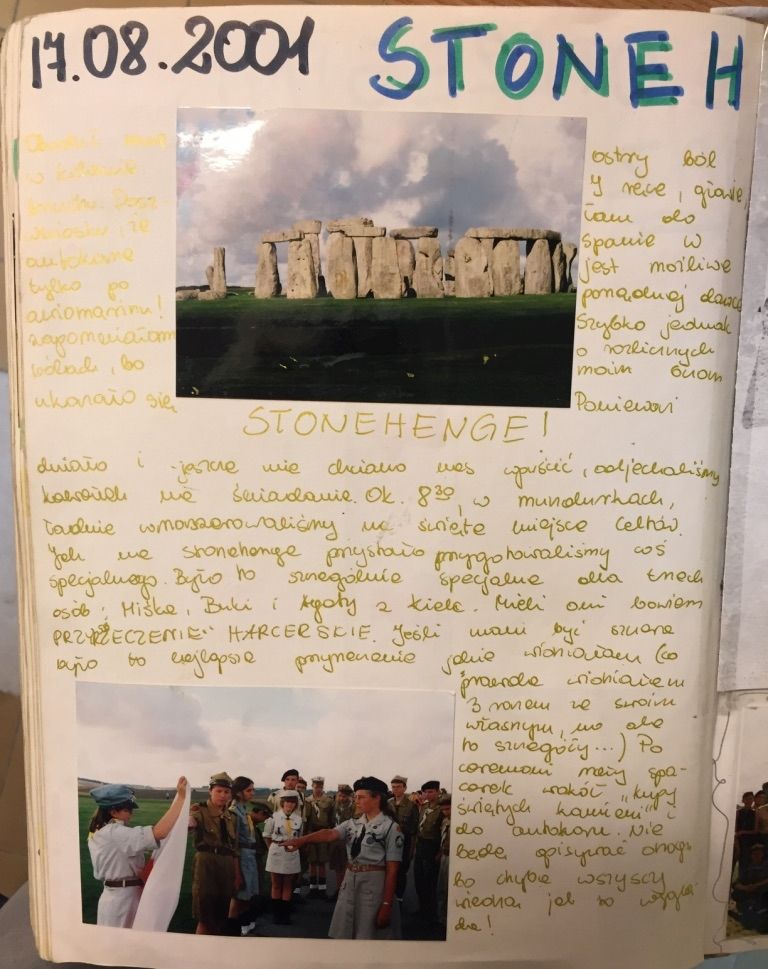 17.08.2001 STONEH
ostry ból
w
tam do
spanie w
autokarze jest możliwe
tylko po porządnej dawce
aviomarinu! Szybko jednak
zapomniałam o rozlicznych
bólach, bo moim oczom
ukazało się Ponieważ
STONEHENGE!
dniało i jeszcze nie chciano nas wpuścić, odjechaliśmy
kawałek na śniadanie. Ok. 8 30, w mundurkach,
ładnie wmaszerowaliśmy na święte miejsce Celtów.
Jak na stonehenge przystało przygotowaliśmy coś
specjalnego. Było to szczególnie specjalne dla trzech
osób: Miśka, Buki i Agaty z Kielc. Mieli oni bowiem
PRZYRZECZENIE HARCERSKIE. Jeśli mam być szczera
było to najlepsze przyrzeczenie jakie widziałam (co
prawda widziałam
3 razem ze swoim
własnym, no ale
to szczegóły...) Po
ceremonii mały spa-
cerek wokół "kupy
świętych kamieni" i
do autokaru. Nie
będę opisywać
bo chyba wszyscy
wiedzą jak to wyglą-
da!